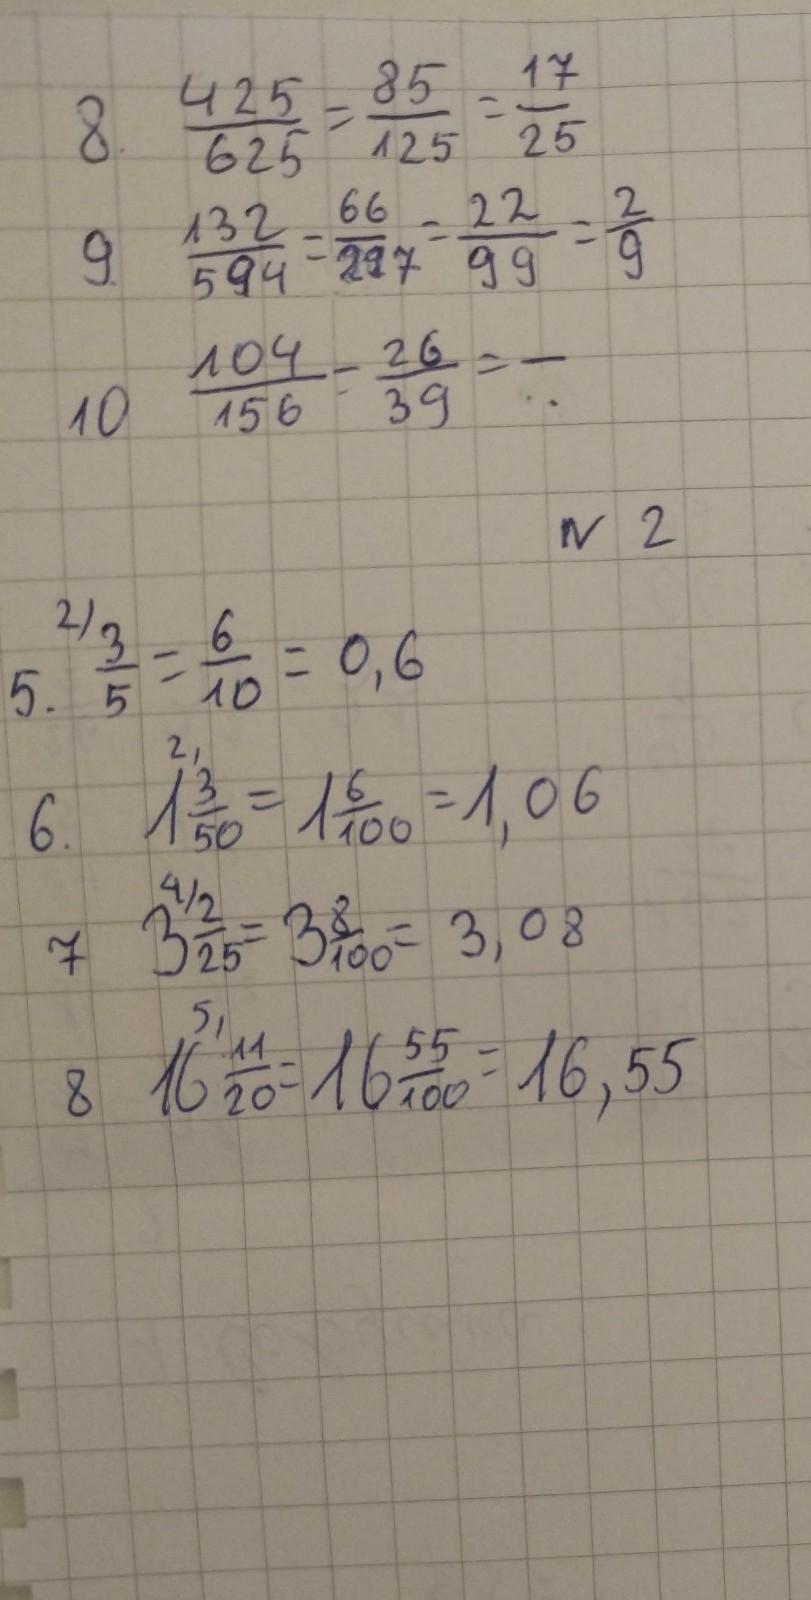 8. 425/625 = 85/125 = 17/25
9. 132/594 = 66/297 = 22/99 = 2/9
10 104/156 = 26/39 = —
N 2
5. 2/ 3/5 = 6/10 = 0,6
6. 2, 1 3/50 = 1 6/100 = 1,06
7 4/ 3 2/25 = 3 8/100 = 3,08
8 5, 16 11/20 = 16 55/100 = 16,55